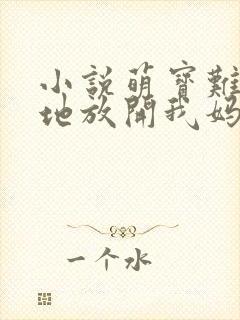 小說萌寶難
地放開我媽
一个水